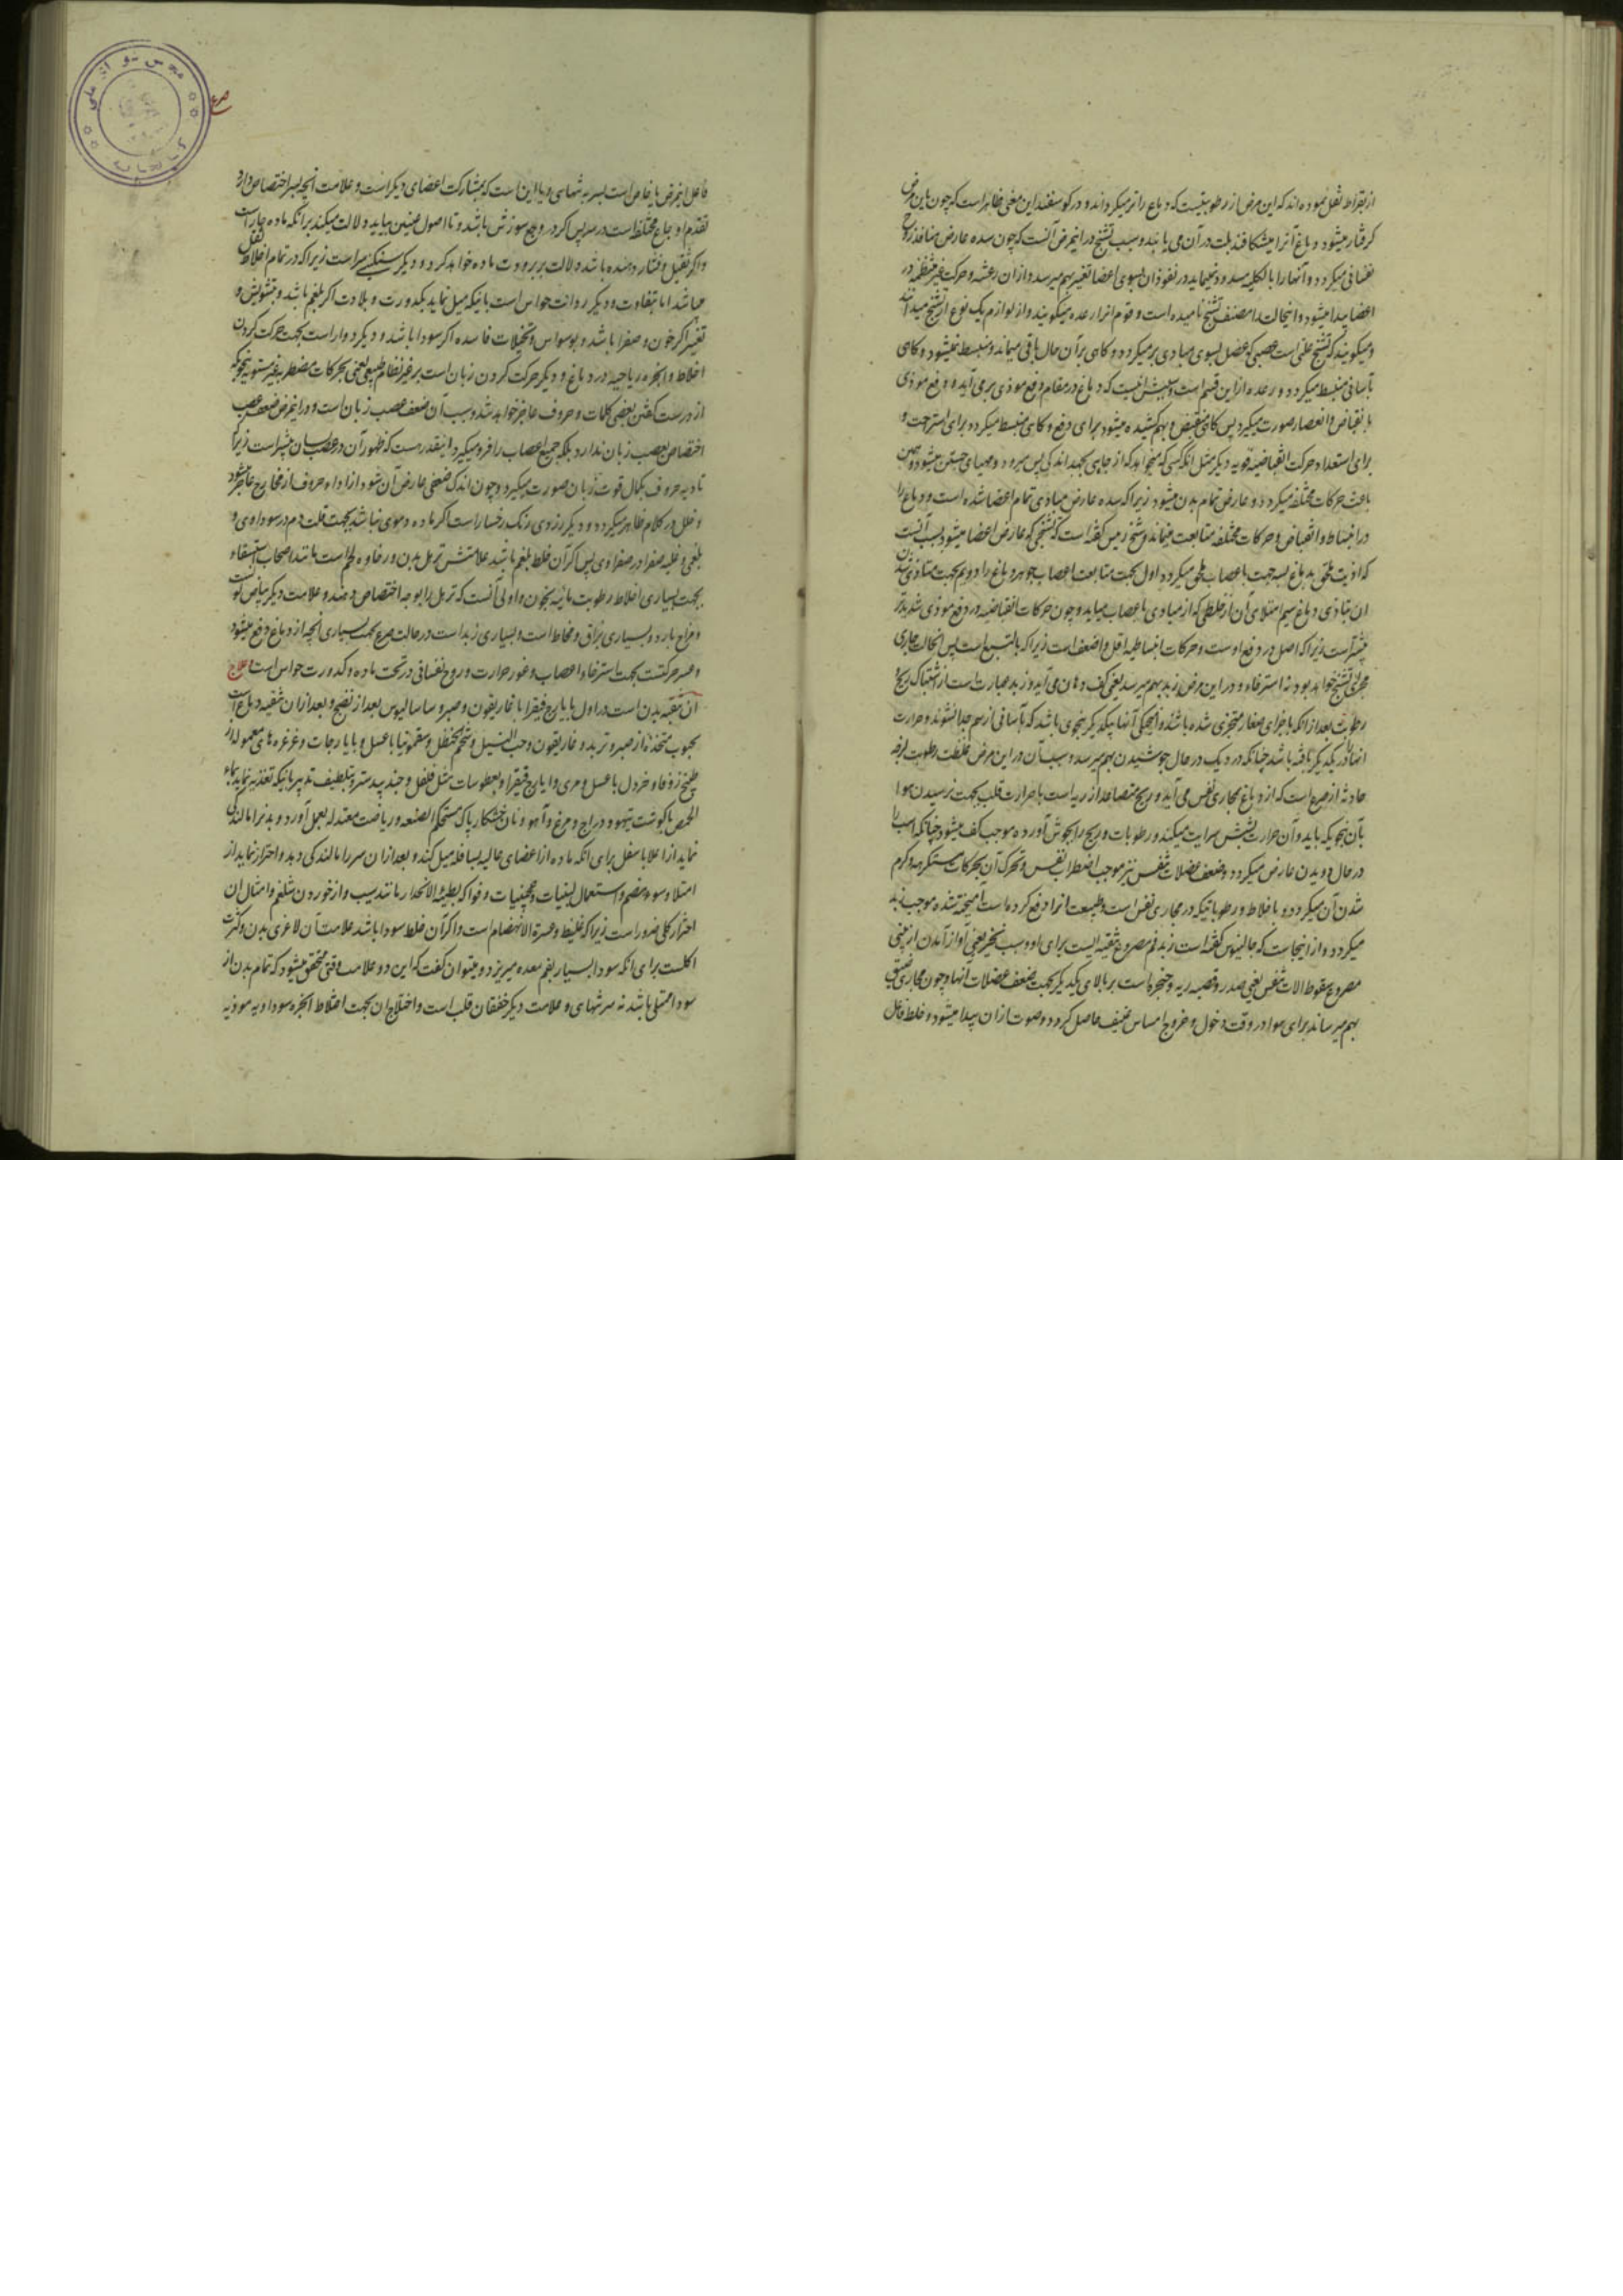 از بقراط نقل نموده اند که این مرض از رطوبتیست که دماغ را تر میکرداند و در کوسفند این معنی ظاهر است که چون باین مرض
کرفتار میشود دماغ آنرا میشکافند بلت در آن می یابند و سبب تشنج در اینمرض آنست که چون سده عارض منافذ روح
نفسانی میکردد و آنها را بالکلیه مسدود نمینماید در نفوذ آن بسوی اعضا تغیر بهم میرسد و از آن رعشه و حرکت غیر منتظمه در
اعضا پیدا میشود و اینحالت را مصنف تشنج نامیده است و قوم انرا رعده میکویند و از لوازم یک نوع از تشنج میدانند
و میکویند که تشنج علتی است عصبی که عضل بسوی مبادی بر میکردد و کاهی بر آن حال باقی میماند و منبسط نمیشود و کاهی
بآسانی منبسط میکردد و رعده ازین قسم است و سببش اینست که دماغ در مقام دفع موذی بر می آید و دفع موذی
بانقباض و انعصار صورت میکیرد پس کاهی منقبض و بهم کشیده میشود برای دفع و کاهی منبسط میکردد برای استراحت و
برای استعداد حرکت انقباضیه قویه دیکر مثل انکه کسی که میخواهد که از جایی بجهد اندکی پس میرود و مهیای جستن میشود و همین
باعث حرکات مختلفه میکردد و عارض تمام بدن میشود زیرا که سده عارض مبادی تمام اعضا شده است و دماغ را
در انبساط و انقباض و حرکات مختلفه متابعت مینمایند و شیخ رئیس کفته است که تشنجی که عارض اعضا میشود بسبب آنست
که اذیت ملحق بدماغ بسه جهت باعصاب ملحق میکردد اول بجهت متابعت اعصاب جوهر دماغ را دویم بجهت متاذی شدن
ان بتاذی دماغ سیم امتلای آن از خلطی که از مبادی باعصاب میاید و چون حرکات انقباضیه در دفع موذی شدیدتر
بیشتر است زیرا که اصل در دفع اوست و حرکات انبساطیه اقل و اضعف است زیرا که بالتبع است پس اینحالت جاری
مجرای تشنج خواهد بود نه استرخاء و در این مرض زبد بهم میرسد یعنی کف دهان می آید و زبد عبارت است از اشتباک ریح و
رطوبت بعد از انکه باجزای صغار متجزی شده باشند و آنها بیکدیکر بنحوی باشد که بآسانی از هم جدا نشوند و حرارت
انها در یکدیکر یافته باشد چنانکه در دیک در حال جوشیدن بهم میرسد و سبب آن در این مرض غلظت رطوبت لزجه
حادثه از صرع است که از دماغ بمجاری نفس می آید و ریح متصاعد از ریه است با حرارت قلب بجهت نرسیدن هوا
بآن بنحویکه باید و آن حرارت بشش سرایت میکند و رطوبات و ریح را بجوش آورده موجب کف میشود چنانکه اسب را
در حال دویدن عارض میکردد و ضعف عضلات تنفس نیز موجب اضطراب نفس و تحرک آن بحرکات مستکرهه و کرم
شدن آن میکردد و با خلاط و رطوباتیکه در مجاری نفس است و طبیعت انرا دفع کرده است آمیخته شده موجب زبد
میکردد و از اینجاست که جالینوس کفته است زبد فم مصروع تنقیه ایست برای او و سبب نخیر یعنی آواز آمدن از بینی
مصروع سقوط الات تنفس یعنی صدر و قصبه ریه و حنجره است بر بالای یکدیکر بجهت ضعف عضلات انها و چون مجاری ضیق
بهم میرساند برای هوا در وقت دخول و خروج امساس عنیف حاصل کردد و صوت از ان پیدا میشود و خلط فاعل
صرع
فاعل اینمرض یا خاص است بسر به تنهایی و یا این است که بمشارکت اعضای دیکر است و علامت آنچه بسر اختصاص دارد
تقدم اوجاع مختلفه است در سر پس اکر در وجع سوزش باشد و تا اصول عینین بیاید دلالت میکند بر انکه ماده حار است
و اکر ثقیل و فشار دهنده باشد دلالت بر برودت ماده خواهد کرد و دیکر سنکینی سر است زیرا که در تمام اخلاط ثقل
میباشد اما بتفاوت و دیکر رداءت حواس است بانیکه میل نماید بکدورت و بلادت اکر بلغم باشد و بتشویش و
تغیر اکر خون و صفرا باشد و بوسواس و تخیلات فاسده اکر سودا باشد و دیکر دوار است بجهت حرکت کردن
اخلاط و ابخره ریاحیه در دماغ و دیکر حرکت کردن زبان است بر غیر نظام طبیعی یعنی بحرکات مضطربه غیر مستویه بنحویکه
از درست کفتن بعضی کلمات و حروف عاجز خواهد شد و سبب آن ضعف عصب زبان است و در اینمرض ضعف عصب
اختصاص بعصب زبان ندارد بلکه جمیع اعصاب را فرو میکیرد اینقدر هست که ظهور آن در عصب لسان بیشتر است زیرا که
تادیه حروف بکمال قوت زبان صورت میکیرد و چون اندک ضعفی عارض آن شود از اداء حروف از مخارج عاجز میشود
و خلل در کلام ظاهر میکردد و دیکر زردی رنک رخسار است اکر ماده دموی نباشد بجهت قلت دم در سوداوی و
بلغمی و غلبه صفرا در صفراوی پس اکر آن خلط بلغم باشد علامتش ترهل بدن و رخاوه لحم است مانند اصحاب استسقاء
بجهت بسیاری اخلاط رطوبت مائیه بخون و اولی آنست که ترهل را بوجه اختصاص دهند و علامت دیکر بیاض لون
و مزاج بارد و بسیاری بزاق و مخاط است و بسیاری زبد است در حالت صرع بجهت بسیاری آنچه از دماغ دفع میشود
و عسر حرکتست بجهت استرخاء اعصاب و غور حرارت و روح نفسانی در تحت ماده و کدورت حواس است علاج
آن تنقیه بدن است در اول بایارج فیقرا با غاریقون و صبر و ساسالیوس بعد از نضج و بعد از ان تنقیه دماغ است
بحبوب متخذه از صبر و تربد و غاریقون و حب النیل و شحم الحنظل و سقمونیا با عسل و بایارجات و غرغره های معموله از
طبیخ زوفا و خردل با عسل و مری و ایارج فیقرا و بعطوسات مثل فلفل و جند بیدستر و بتلطیف تدبیر بانیکه تغذیه نماید بماء
الحمص با کوشت تیهو و دراج و مرغ و آهو و نان خشکار پاک مستحکم الصنعه و ریاضت معتدله بعمل آورد و بدنرا مالندکی
نماید از اعلا باسفل برای انکه ماده از اعضای عالیه بسافله میل کند و بعد از ان سر را مالندکی دهد و احتراز نماید از
امتلا و سوء هضم و استعمال لبنیات و جبنیات و فواکه بطیئة الانحدار مانند سیب و از خوردن شلغم و امثال ان
احتراز کلی ضرور است زیرا که غلیظ و عسرة الانهضام است و اکر آن خلط سودا باشد علامت آن لاغری بدن و کثرت
اکلست برای انکه سودا بسیار بفم معده میریزد و میتوان کفت که این دو علامت وقتی متحقق میشود که تمام بدن از
سودا ممتلی باشد نه سر تنهای و علامت دیکر خفقان قلب است و اختلاج ان بجهت اختلاط ابخره سوداویه موذیه